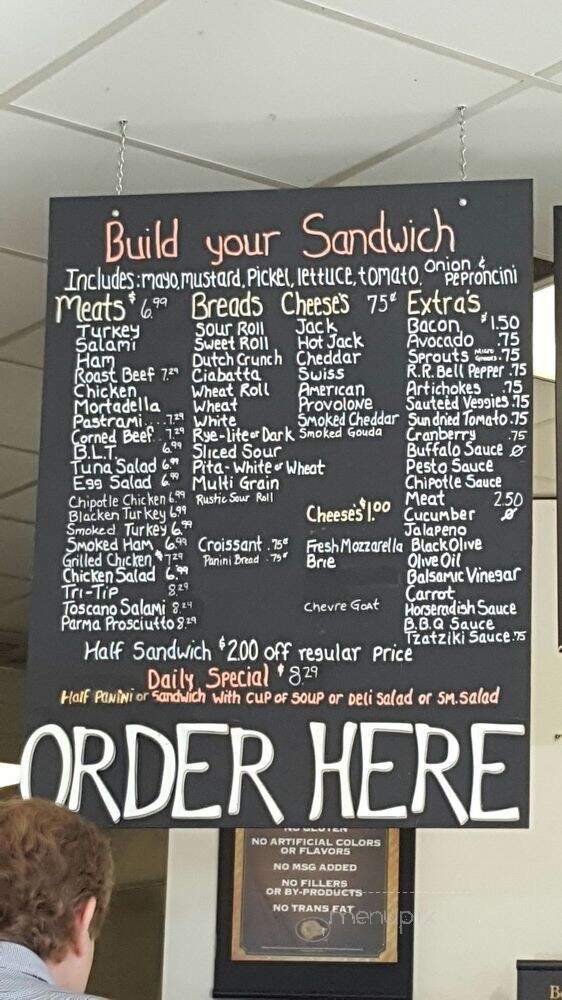 Build your Sandwich
Includes: mayo, mustard, Pickel, lettuce, tomato, Onion & PePRoncini
Meats $6.99
Turkey
Salami
Ham
Roast Beef 7.29
Chicken
Mortadella
Pastrami....7.29
Corned Beef 7.29
B.L.T. 6.99
Tuna Salad 6.99
Egg Salad 6.99
Chipotle Chicken 6.99
Blacken Turkey 6.99
Smoked Turkey 6.99
Smoked Ham 6.99
Grilled Chicken $7.29
Chicken Salad 6.99
Tri-Tip 8.29
Toscano Salami 8.29
Parma Prosciutto 8.29
Breads
Sour Roll
Sweet Roll
Dutch Crunch
Ciabatta
Wheat Roll
Wheat
White
Rye-lite or Dark
Sliced Sour
Pita-White or Wheat
Multi Grain
Rustic Sour Roll
Croissant .75¢
Panini Bread .75¢
Cheese's 75¢
Jack
Hot Jack
Cheddar
Swiss
American
Provolone
Smoked Cheddar
Smoked Gouda
Cheese's $1.00
Fresh Mozzarella
Brie
Chevre Goat
Extra's
Bacon $1.50
Avocado .75
Sprouts Micro Greens .75
R.R. Bell Pepper .75
Artichokes .75
Sauteéd Veggies .75
Sun dried Tomato .75
Cranberry .75
Buffalo Sauce Ø
Pesto Sauce
Chipotle Sauce
Meat 2.50
Cucumber Ø
Jalapeno
Black Olive
Olive Oil
Balsamic Vinegar
Carrot
Horseradish Sauce
B.B.Q Sauce
Tzatziki Sauce .75
Half Sandwich $2.00 off regular Price
Daily Special $8.29
Half Panini or Sandwich With CUP OF SOUP or Deli Salad or SM. Salad
ORDER HERE
NO GLUTEN
NO ARTIFICIAL COLORS
OR FLAVORS
NO MSG ADDED
NO FILLERS
OR BY-PRODUCTS
NO TRANS FAT
menupix